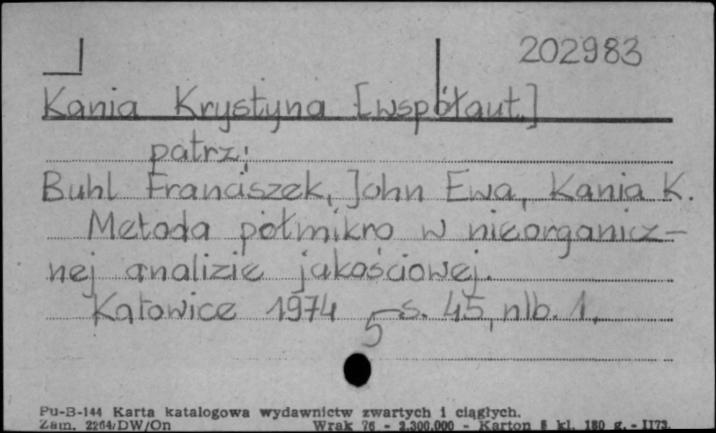 202983
Kania Krystyna [współaut.]
patrz:
Buhl Franciszek, John Ewa, Kania K.
Metoda półmikro w nieorganicz-
nej analizie jakościowej.
Katowice 1974 s. 45, nlb. 1.
5
Pu-B-144 Karta katalogowa wydawnictw zwartych i ciągłych.
Zam. 2264/DW/On Wrak 76 - 2.300.000 - Karton kl. 180 g. - 1173.